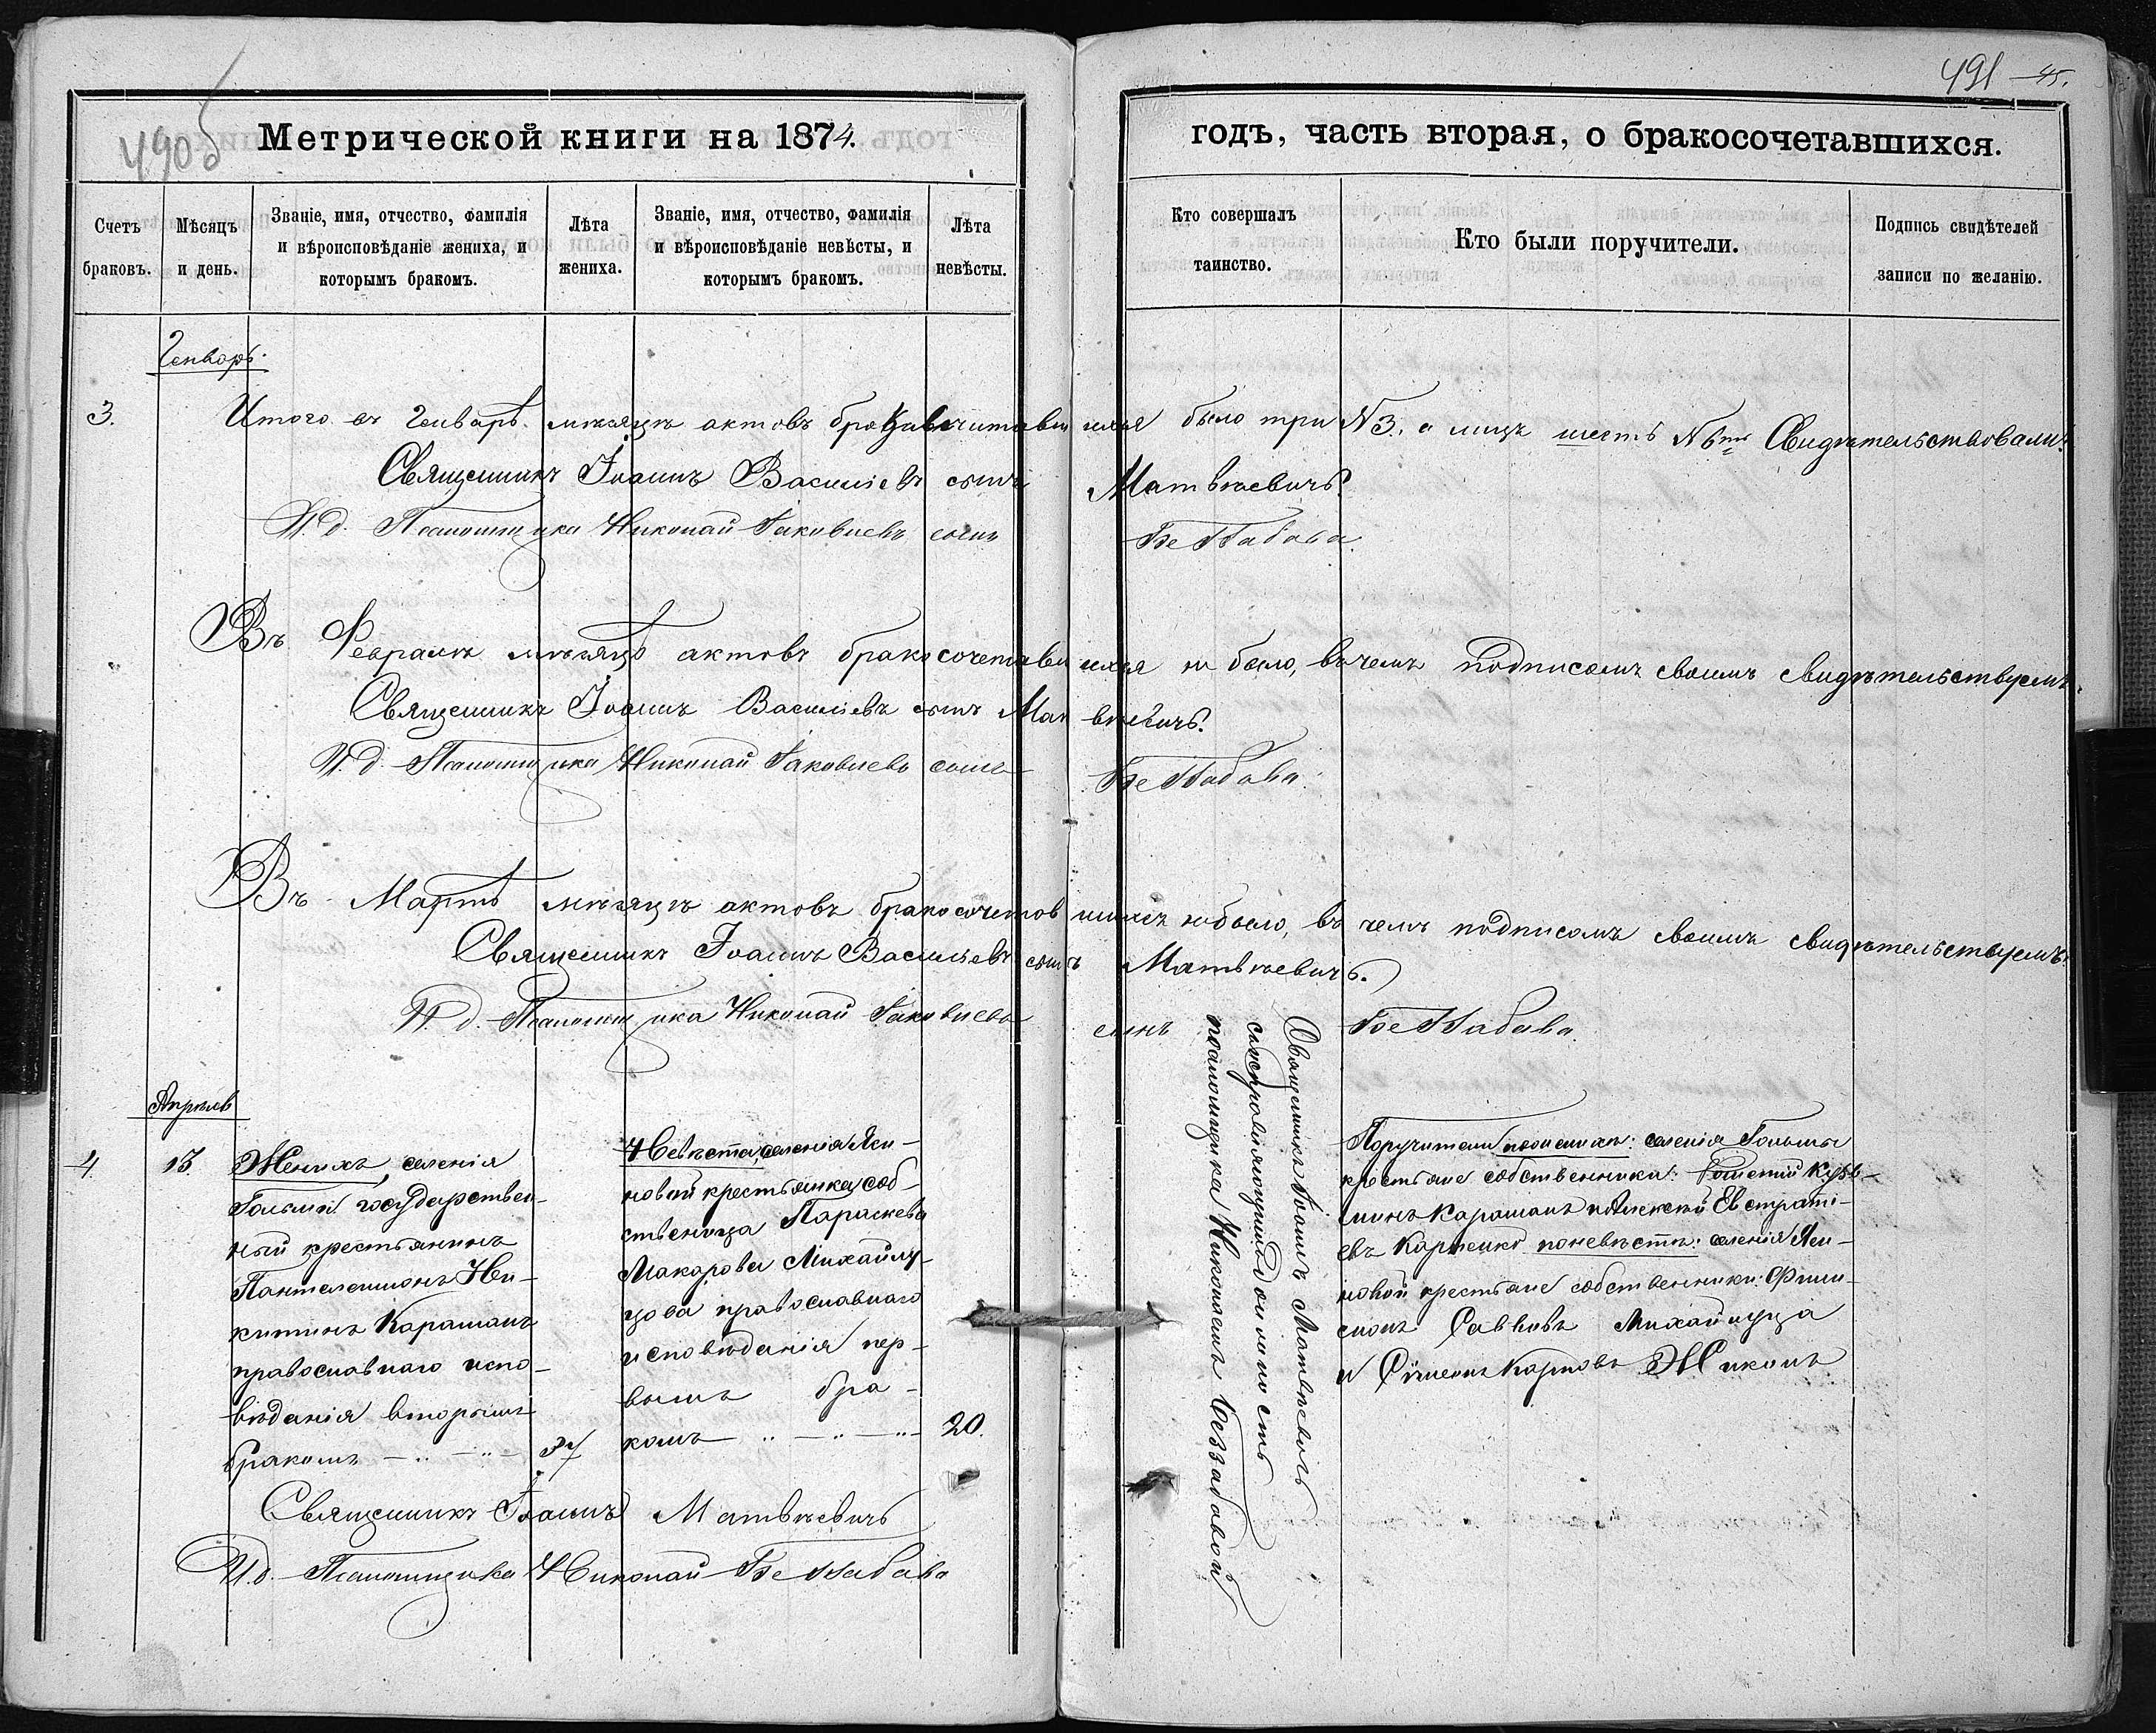 490б
491 45.
Метрической книги на 1874.
годъ, часть вторая, о бракосочетавшихся.
Счетъ браковъ.
Мѣсяцъ и день.
Званіе, имя, отчество, фамилія и вѣроисповѣданіе жениха, и которымъ бракомъ.
Лѣта жениха.
Званіе, имя, отчество, фамилія и вѣроисповѣданіе невѣсты, и которымъ бракомъ.
Лѣта невѣсты.
Кто совершалъ таинство.
Кто были поручители.
Подпись свидѣтелей записи по желанію.
Генварь.
3. Итого въ Генварѣ мѣсяцѣ актовъ бракосочитавшихся было три №3. а лицъ шесть №6ть Свидѣтельствовали:
Священникъ Іоаннъ Васильевъ сынъ Матвѣевичъ.
И. д. Псаломщика Николай Іаковлевъ сынъ Беззабава.
Въ Февралѣ мѣсяцѣ актовъ бракосочетавшихся не было, въ чемъ подписомъ своимъ свидѣтельствуемъ.
Священникъ Іоаннъ Васильевъ сынъ Матвѣевичъ.
И. д. Псаломщика Николай Іаковлевъ сынъ Беззабава.
Въ Мартѣ мѣсяцѣ актовъ бракосочетавшихся небыло, въ чемъ подписомъ своимъ свидѣтельствуемъ.
Священникъ Іоаннъ Васильевъ сынъ Матвѣевичъ.
И. д. Псаломщика Николай Іаковлевъ сынъ Беззабава.
Апрѣль
4. 13.
Женихъ, селенія
государствен-
ный крестьянинъ
Пантелеимонъ Ни-
китинъ Караманъ
православнаго испо-
вѣданія вторымъ
бракомъ — „ — „ — 37
Невѣста, селенія Яси-
новой крестьянка соб-
ственница Параскева
Макарова Михайлу-
цова православнаго
исповѣданія пер-
вымъ бра-
комъ — „ — „ — „ — 20.
Священникъ Іоаннъ Матвѣевичъ
И.д. Псаломщика Николай Беззабава
Священникъ Іоаннъ Матвѣевичъ
съисправляющимъ должность
псаломщика Николаемъ Беззабавой
Поручители по женихѣ: селенія
крестьяне собственники: Кузь-
минъ Караманъ и Алексѣй Евстраті-
евъ Карпенко по невѣстѣ: селенія Яси-
новой крестьяне собственники: Фили-
монъ Савковъ Михайлуца
и Симеонъ Карповъ